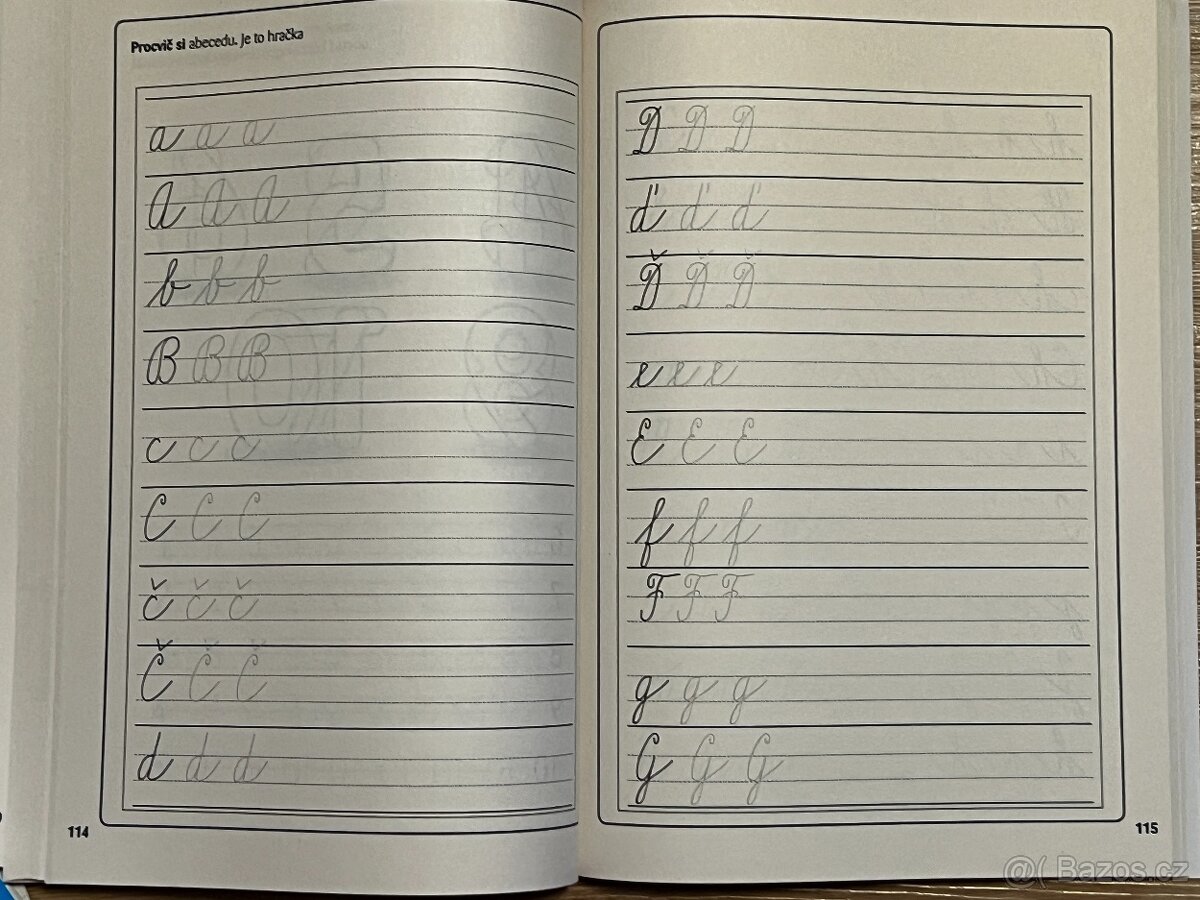 Procvič si abecedu. Je to hračka
a a a
A A A
b b b
B B B
c c c
C C C
č č č
Č Č Č
d d d
114
D D D
ď ď ď
Ď Ď Ď
e e e
E E E
f f f
F F F
g g g
G G G
115
@( Bazos.cz